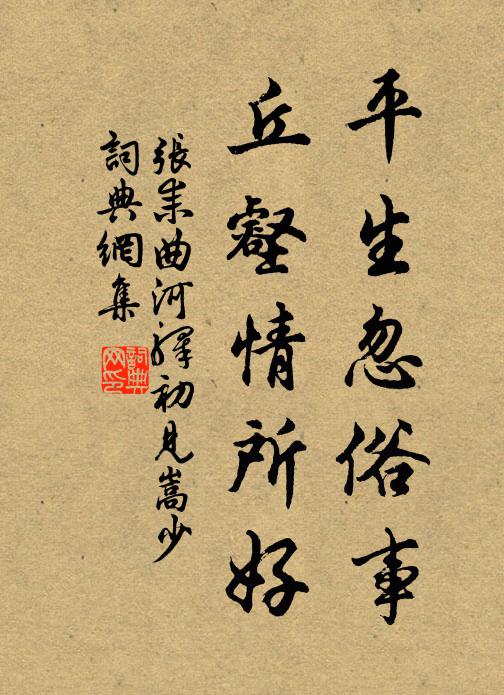 平生忽俗事
丘壑情所好
張耒曲河驛初見嵩少
詞典網集
詞典网印